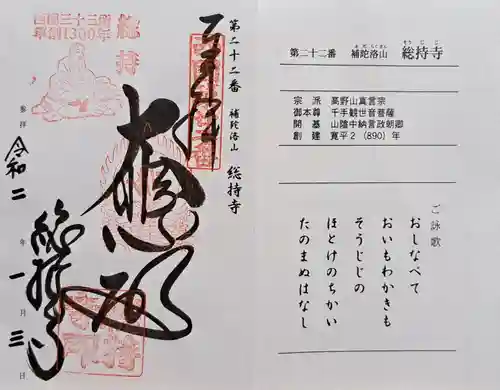 第二十二番 補陀洛山 総持寺
奉拝
大悲殿
総持寺
参拝 令和二年一月三日
西国三十三所
草創1300年
総持
第二十二番 補陀洛山 総持寺
ふだらくさん そうじじ
宗 派 高野山真言宗
御本尊 千手観世音菩薩
開 基 山陰中納言政朝卿
創 建 寛平2(890)年
ご詠歌
おしなべて
おいもわかきも
そうじじの
ほとけのちかい
たのまぬはなし